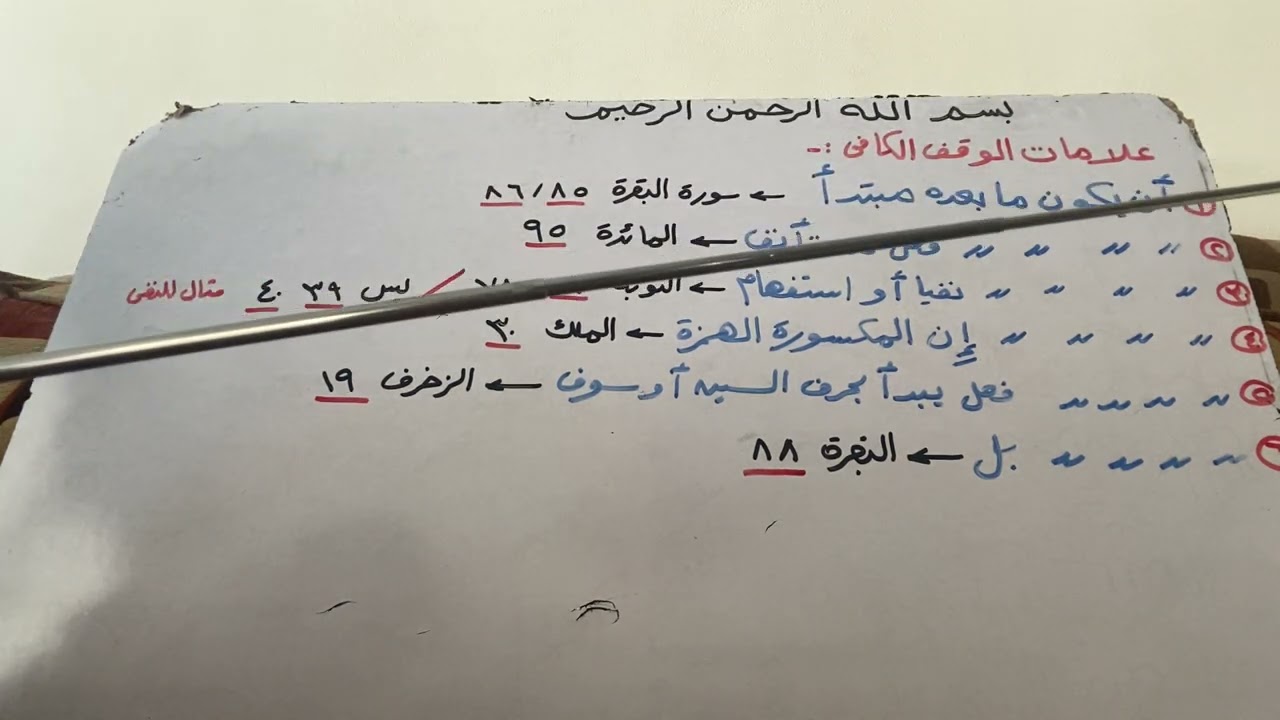 بسم الله الرحمن الرحيم
علامات الوقف الكافى :-
① أن يكون ما بعده مبتدأ ← سورة البقرة ٨٥ / ٨٦
② " " " " ← المائدة ٩٥
③ " " " " نفيا أو استفهام ← التوبة / يس ٣٩ ٤٠ مثال للنفى
④ " " " " إن المكسورة الهمزة ← الملك ٣٠
⑤ " " " " فعل يبدأ بحرف السين أو سوف ← الزخرف ١٩
⑥ " " " " بل ← البقرة ٨٨